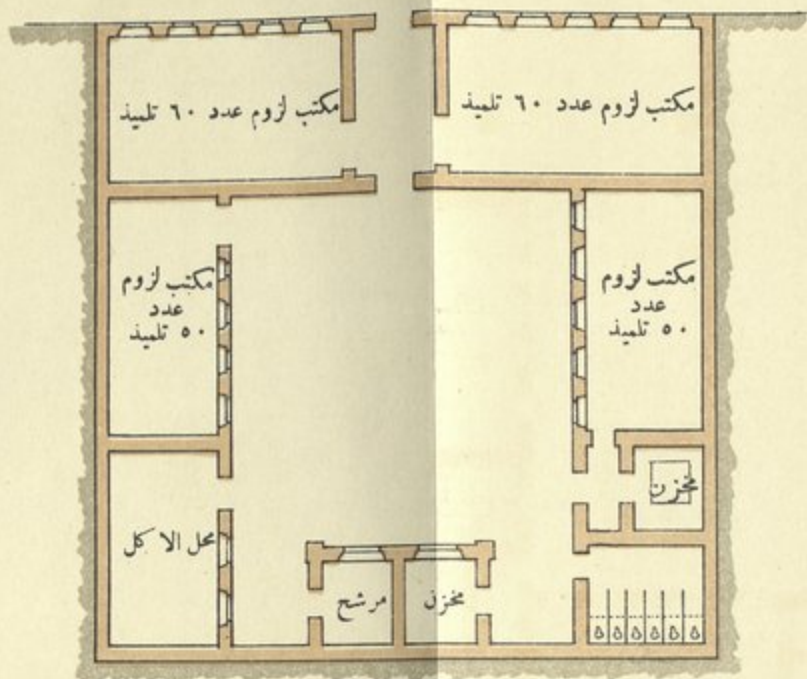 مكتب لزوم عدد ٦٠ تلميذ
مكتب لزوم عدد ٦٠ تلميذ
مكتب لزوم
عدد
٥٠ تلميذ
مكتب لزوم
عدد
٥٠ تلميذ
مخزن
محل الاكل
مخزن
مرشح